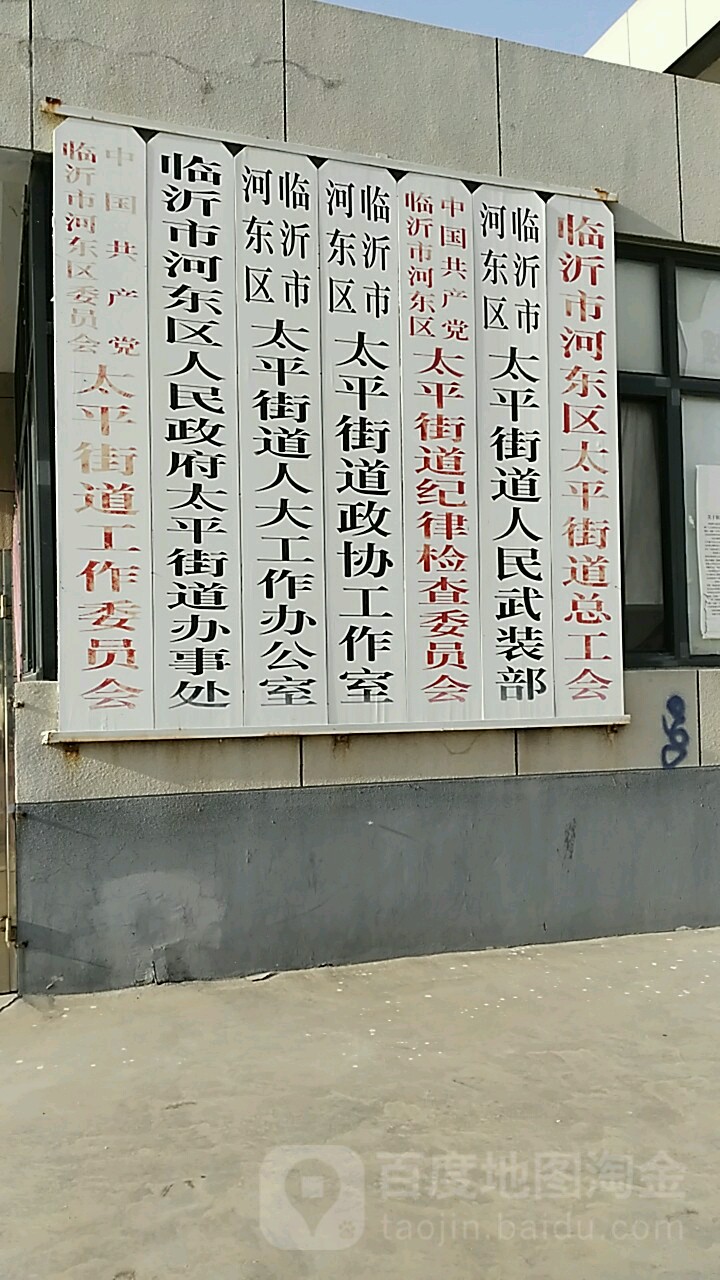 中国共产党
临沂市河东区委员会
太平街道工作委员会
临沂市河东区人民政府太平街道办事处
临沂市
河东区
太平街道人大工作办公室
临沂市
河东区
太平街道政协工作室
中国共产党
临沂市河东区
太平街道纪律检查委员会
临沂市
河东区
太平街道人民武装部
临沂市河东区太平街道总工会
百度地图淘金
taojin.baidu.com